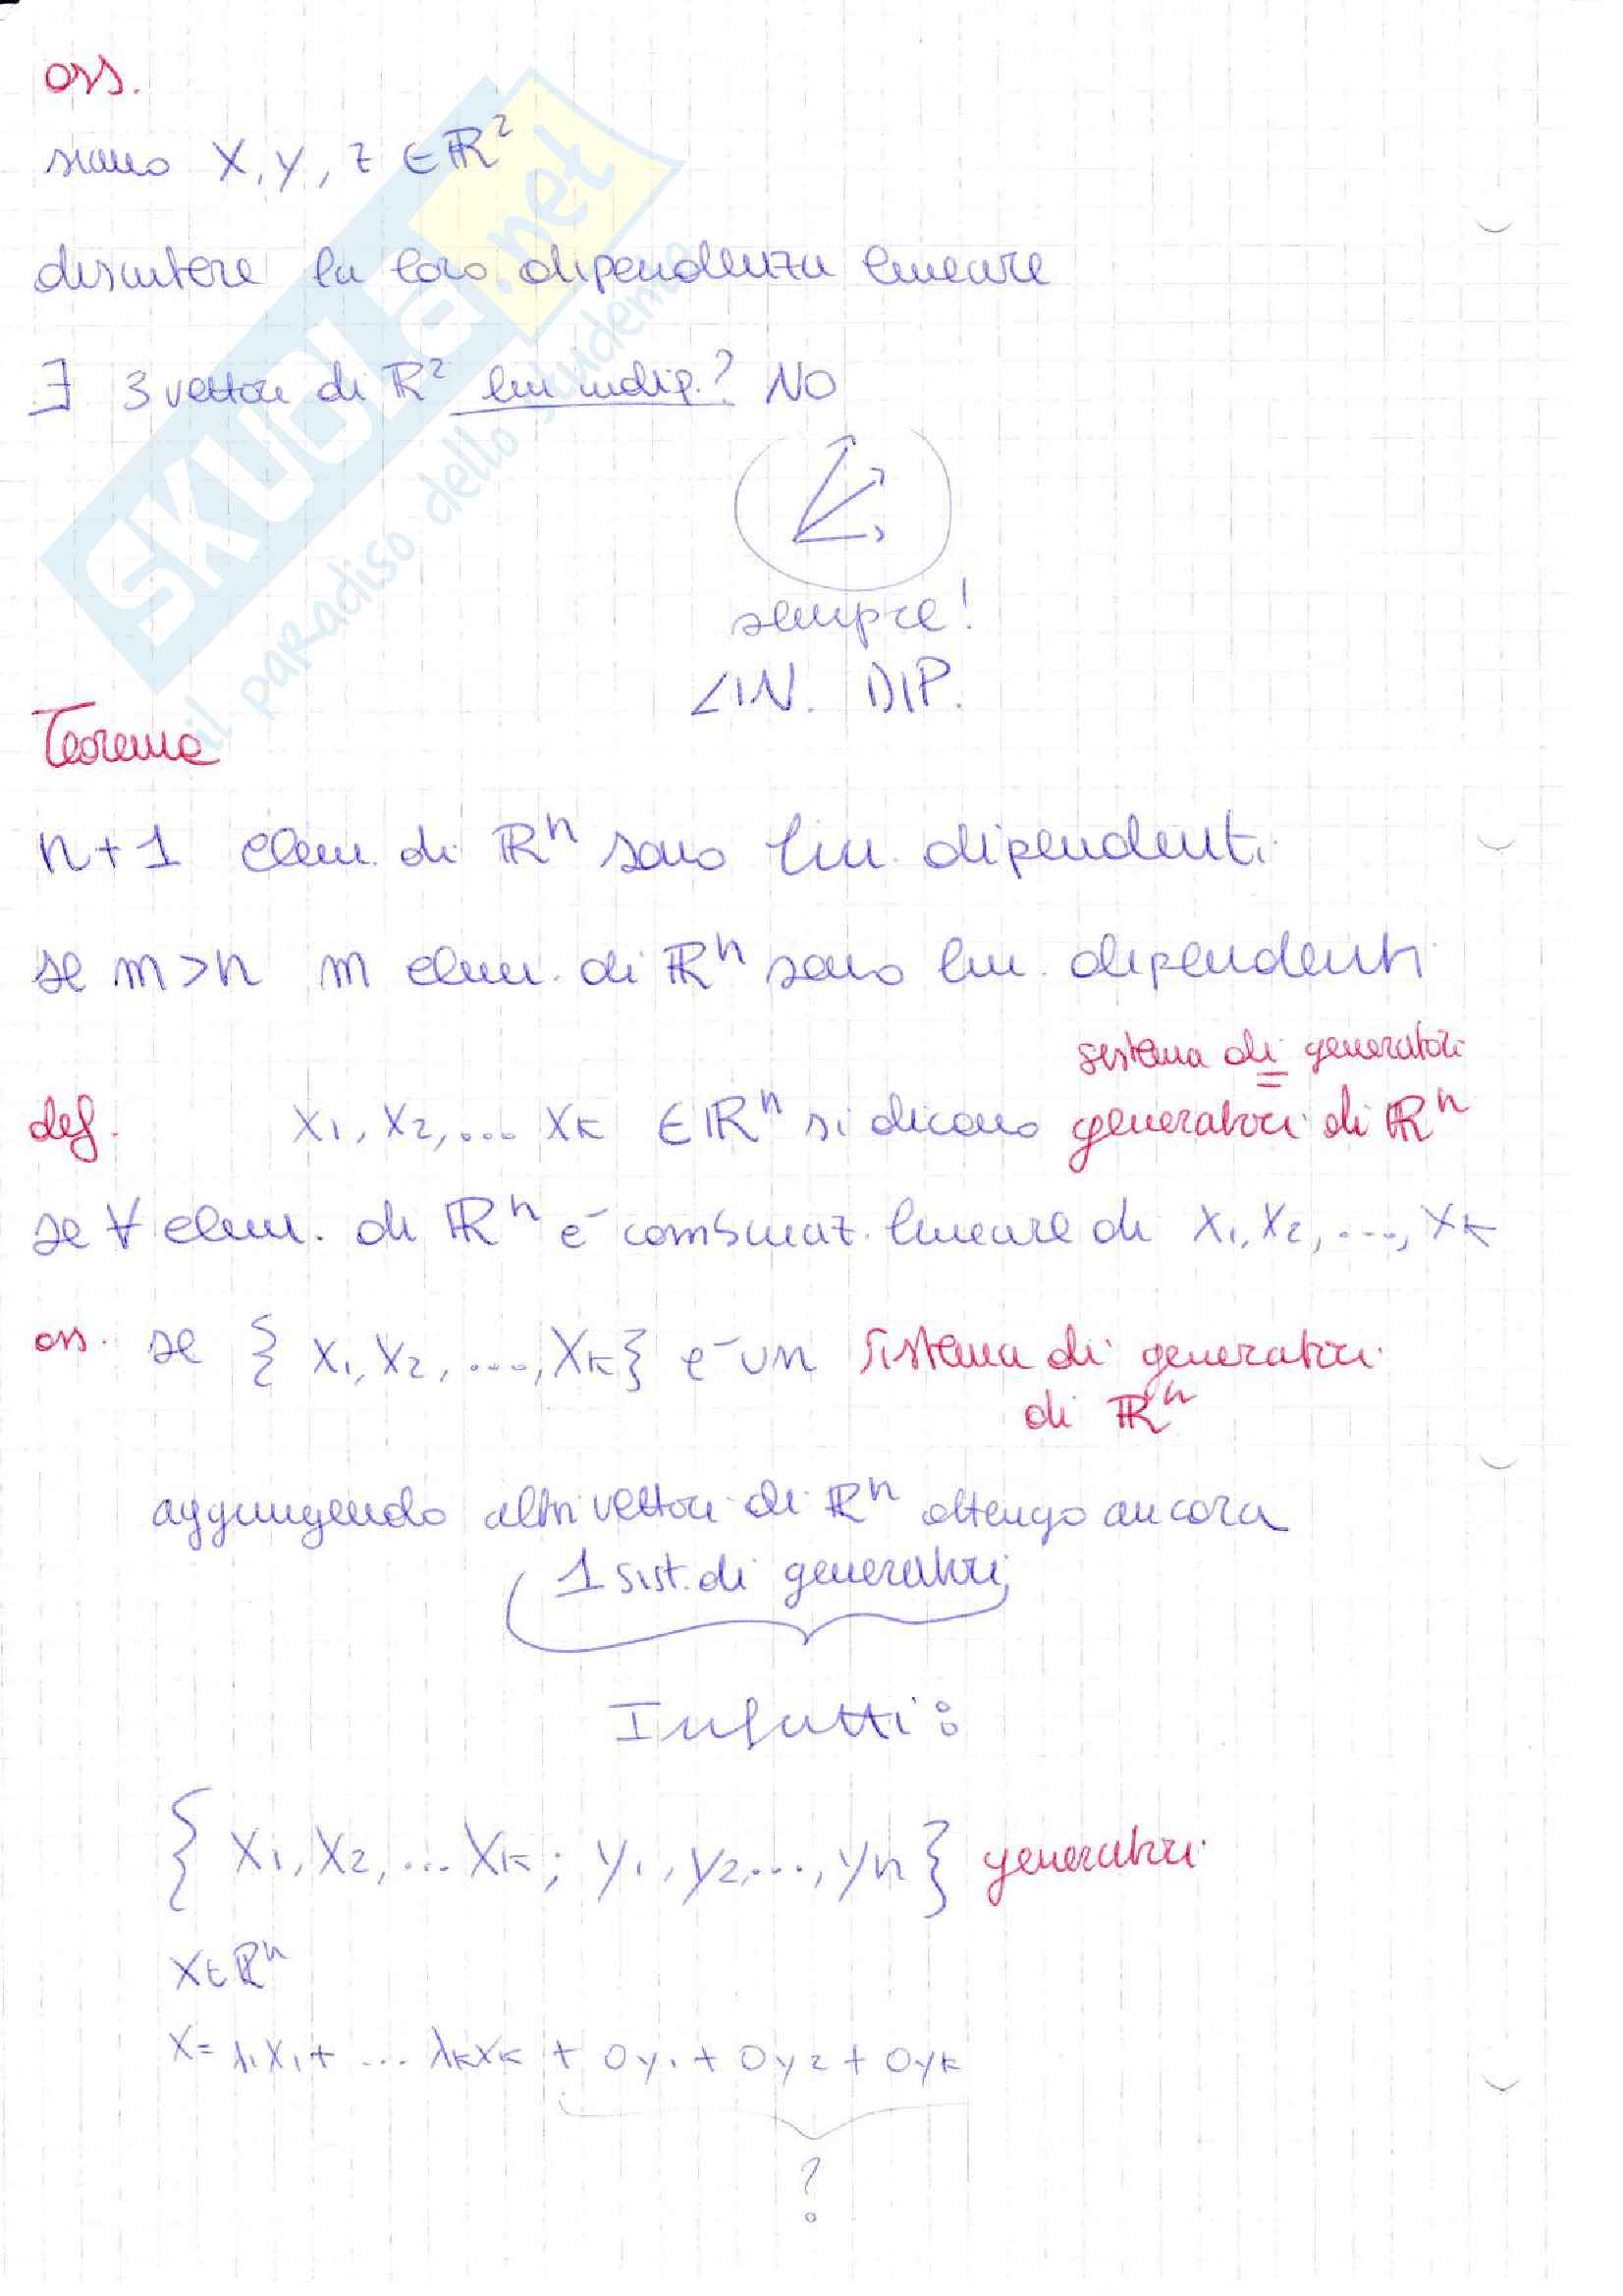 oss.
siano X, Y, Z ∈ ℝ²
discutere la loro dipendenza lineare
∃ 3 vettori di ℝ² lin indip.? NO
sempre!
LIN. DIP.
Teorema
n+1 elem. di ℝⁿ sono lin. dipendenti
se m>n m elem. di ℝⁿ sono lin. dipendenti
sistema di generatori
=
def. X₁, X₂, ... Xk ∈ ℝⁿ si dicono generatori di ℝⁿ
se ∀ elem. di ℝⁿ è combinaz. lineare di X₁, X₂, ..., Xk
oss. se { X₁, X₂, ..., Xk } è un sistema di generatori
di ℝⁿ
aggiungendo altri vettori di ℝⁿ ottengo ancora
1 sist. di generatori
Infatti:
{ X₁, X₂, ... Xk; y₁, y₂, ..., yn } generatori
X ∈ ℝⁿ
X = λ₁X₁ + ... λkXk + 0y₁ + 0y₂ + 0yk
?
SKUOLA.net
il paradiso dello studente